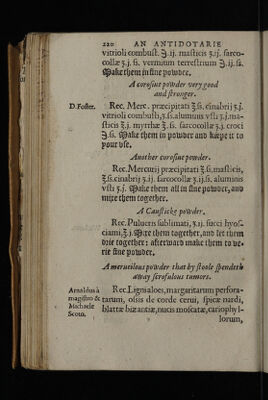 220 AN ANTIDOTARIE
vitrioli combust. ℥.ij. masticis ʒ.ij. sarco-
collæ ʒ.j. ß. vermium terrestrium ℥.ij. ß.
Make them in fine powder.
A corosiue powder very good
and stronger.
D. Foster. Rec. Merc. præcipitati ℥.ß. cinabrij ʒ.j.
vitrioli combusti, ʒ.ß. aluminis vsti ʒ.j. ma-
sticis ℥.j. myrrhæ ℥. ß. sarcocollæ ʒ.j. croci
℈.ß. Make them in powder and keepe it to
your vse.
Another corosiue powder.
Rec. Mercurij præcipitati ℥.ß. masticis,
℥.ß. cinabrij ʒ.ij. sarcocollæ ʒ.ij.ß. aluminis
vsti ʒ.j. Make them all in fine powder, and
mixe them together.
A Causticke powder.
Rec. Pulueris sublimati, ʒ.ij. succi hyos-
ciami, ℥.j. Mixe them together, and let them
drie together: afterward make them to ve-
rie fine powder.
A merueilous powder that by stoole spendeth
away scrofulous tumors.
Arnoldus à Rec. Ligni aloes, margaritarum perfora-
magistro & tarum, ossis de corde cerui, spicæ nardi,
Michaele blattæ bizantiæ, nucis moscatæ, cariophyl-
Scoto. lorum,